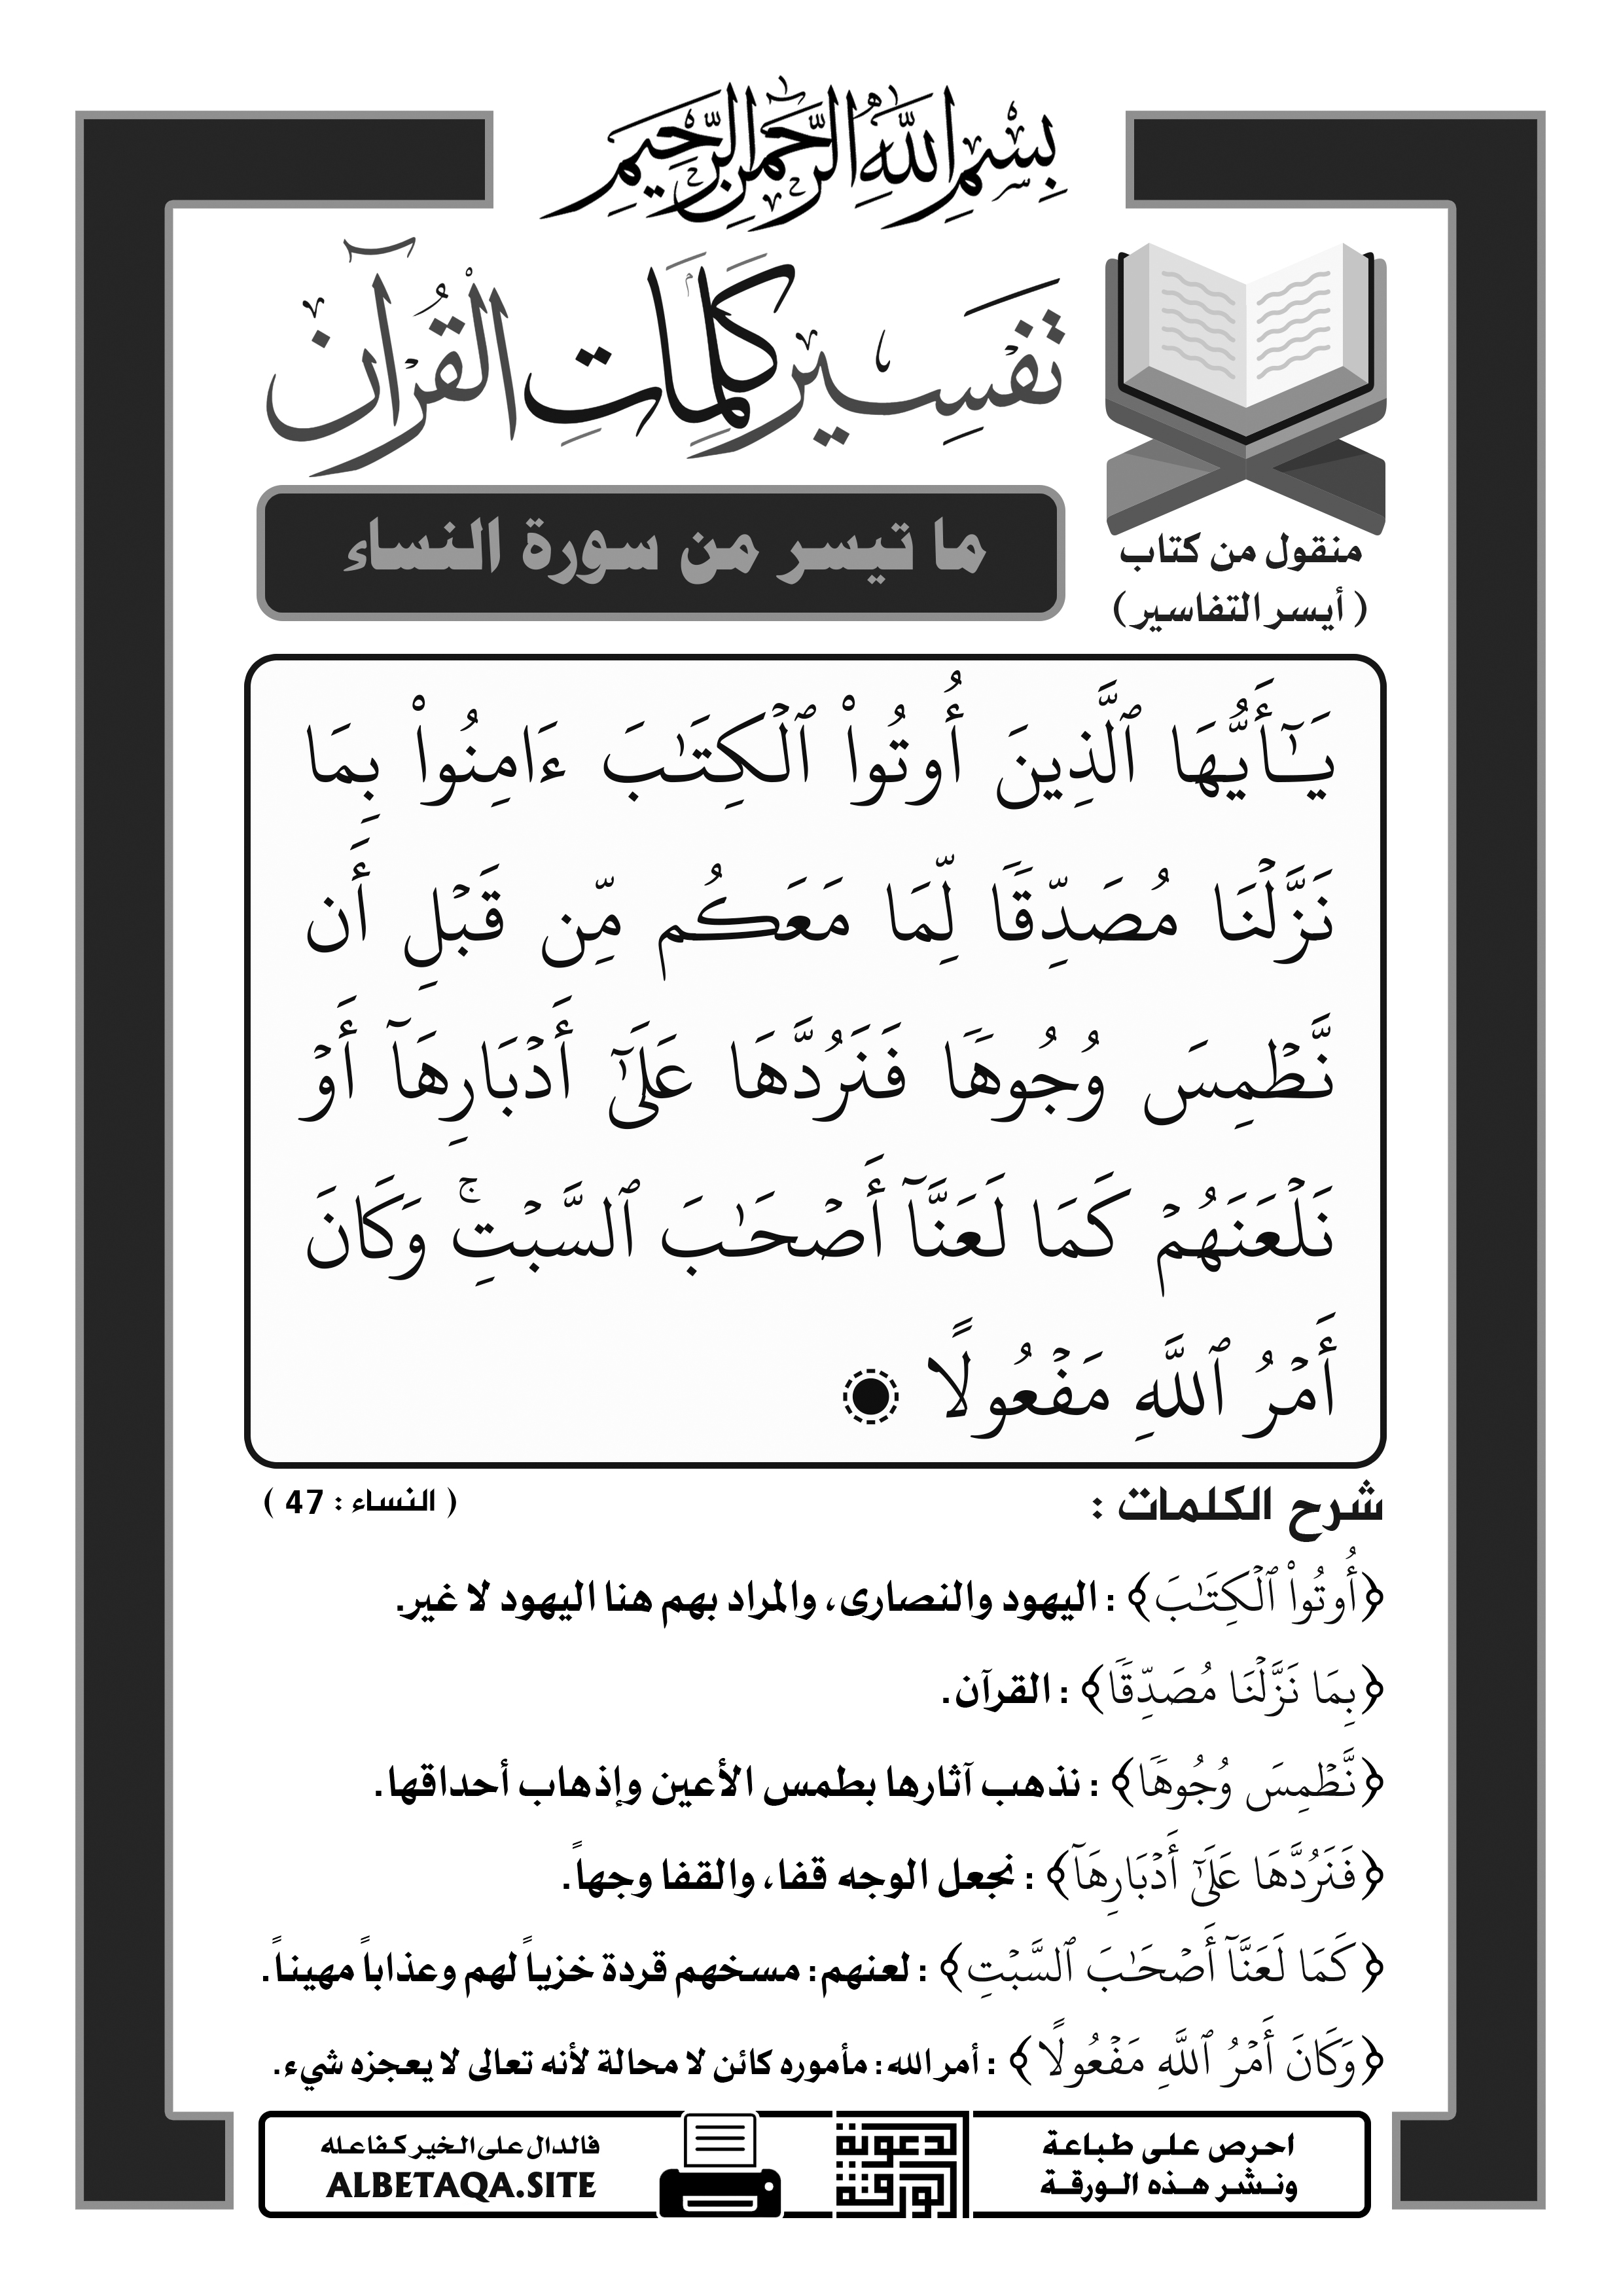 بِسْمِ اللَّهِ الرَّحْمَٰنِ الرَّحِيمِ
تَفْسِير كَلِمَاتِ الْقُرْآن
ما تيسر من سورة النساء
منقول من كتاب
( أيسر التفاسير )
يَـٰٓأَيُّهَا ٱلَّذِينَ أُوتُوا۟ ٱلْكِتَـٰبَ ءَامِنُوا۟ بِمَا
نَزَّلْنَا مُصَدِّقًا لِّمَا مَعَكُم مِّن قَبْلِ أَن
نَّطْمِسَ وُجُوهًا فَنَرُدَّهَا عَلَىٰٓ أَدْبَارِهَآ أَوْ
نَلْعَنَهُمْ كَمَا لَعَنَّآ أَصْحَـٰبَ ٱلسَّبْتِ ۚ وَكَانَ
أَمْرُ ٱللَّهِ مَفْعُولًا
شرح الكلمات :
( النساء : 47 )
﴿أُوتُوا۟ ٱلْكِتَـٰبَ﴾ : اليهود والنصارى، والمراد بهم هنا اليهود لا غير.
﴿بِمَا نَزَّلْنَا مُصَدِّقًا﴾ : القرآن.
﴿نَّطْمِسَ وُجُوهًا﴾ : نذهب آثارها بطمس الأعين وإذهاب أحداقها.
﴿فَنَرُدَّهَا عَلَىٰٓ أَدْبَارِهَآ﴾ : نجعل الوجه قفا، والقفا وجهاً.
﴿كَمَا لَعَنَّآ أَصْحَـٰبَ ٱلسَّبْتِ﴾ : لعنهم: مسخهم قردة خزياً لهم وعذاباً مهيناً.
﴿وَكَانَ أَمْرُ ٱللَّهِ مَفْعُولًا﴾ : أمر الله: مأموره كائن لا محالة لأنه تعالى لا يعجزه شيء.
احرص على طباعة
ونشر هذه الورقة
الورقة
الدعوية
فالدال على الخير كفاعله
ALBETAQA.SITE